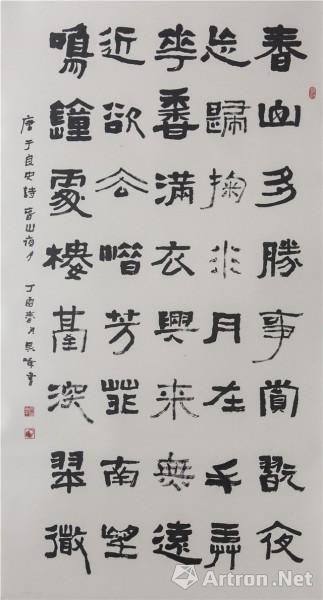 春山多勝事賞翫夜
忘歸掬水月在手弄
華香滿衣興來無遠
近欲去惜芳菲南望
鳴鐘處樓臺深翠微
唐于良史詩春山夜月 丁酉春月 峰書
Artron.Net